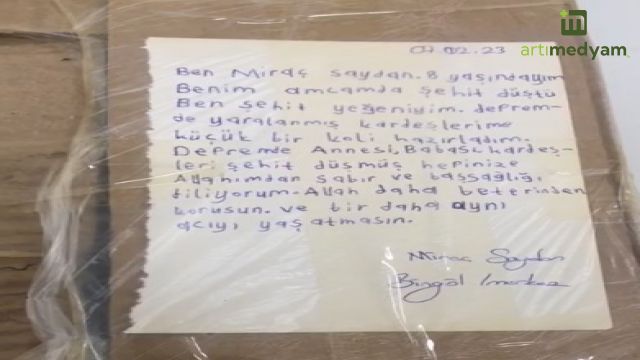 artımedyam
07.02.23
Ben Miraç Saydan. 8 yaşındayım
Benim amcamda şehit düştü
Ben şehit yeğeniyim. deprem-
de yaralanmış kardeşlerime
küçük bir koli hazırladım.
Depremde Annesi, Babası kardeş-
leri şehit düşmüş hepinize
Allahımdan sabır ve başsağlığı
diliyorum. Allah daha beterinden
korusun. ve bir daha aynı
acıyı yaşatmasın.
Miraç Saydan
Bingöl / merkez